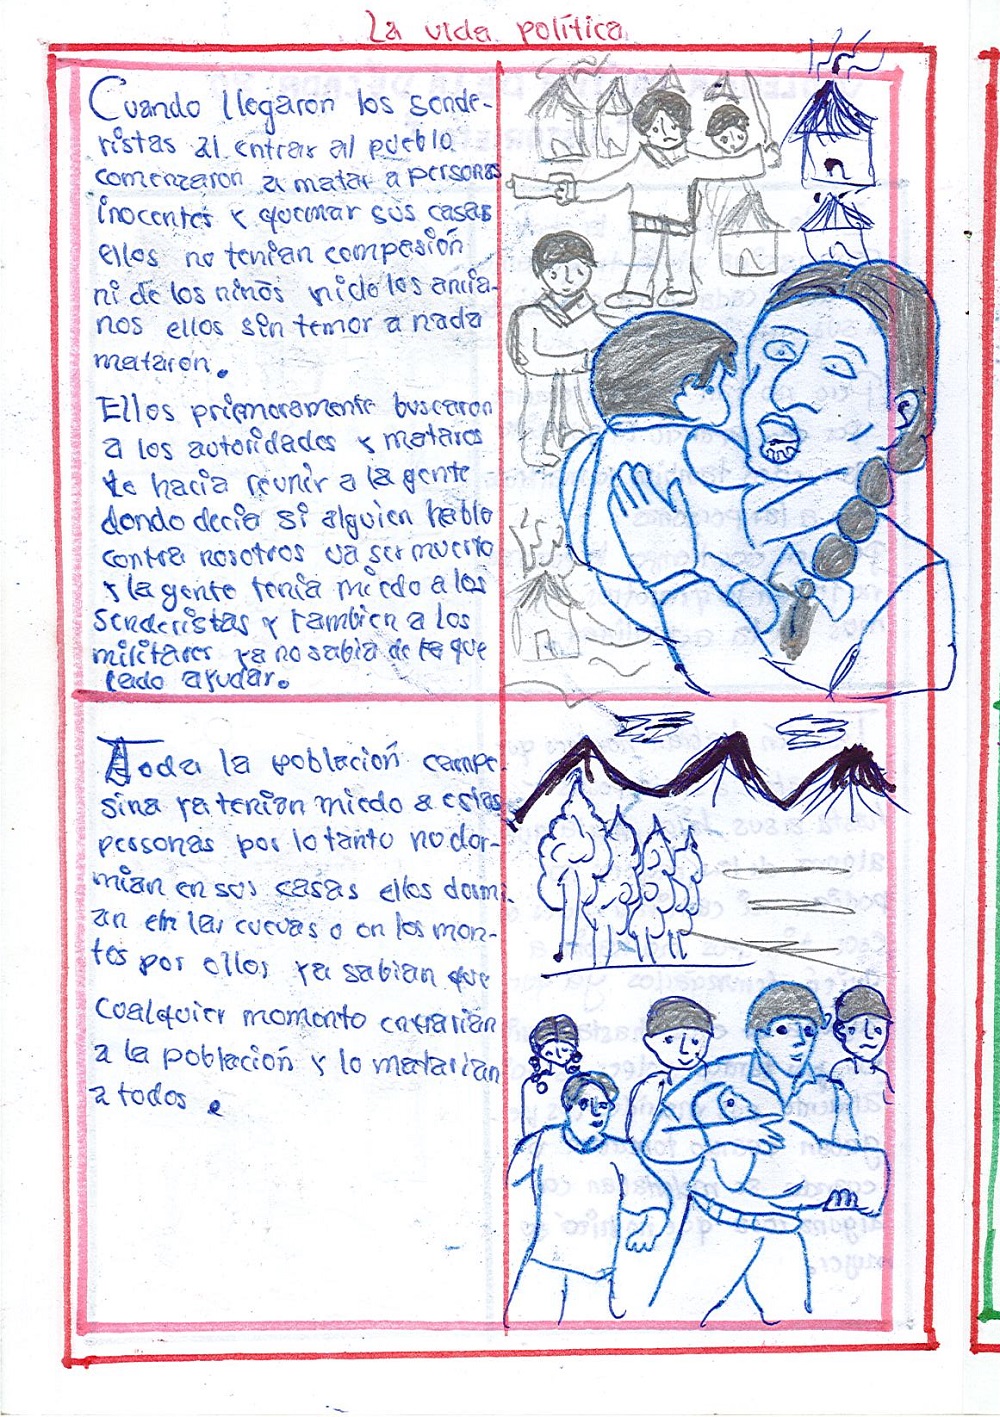 La vida política
Cuando llegaron los sende-
ristas al entrar al pueblo
comenzaron a matar a personas
inocentes y quemar sus casas
ellos no tenian compasión
ni de los niños ni de los ancia-
nos ellos sin temor a nada
mataron.
Ellos priemeramente buscaron
a los autoridades y mataros
te hacia reunir a la gente
dondo decia si alguien hablo
contra nosotros va ser muerto
y la gente tenia miedo a los
Senderistas y tambien a los
militares ya no sabia de que
lado ayudar.
Toda la población campe-
sina ya tenian miedo a estas
personas por lo tanto no dor-
mian en sus casas ellos dormi-
an en las cuevas o en los mon-
tes por ellos ya sabian que
cualquier momento entrarian
a la población y lo matarian
a todos.